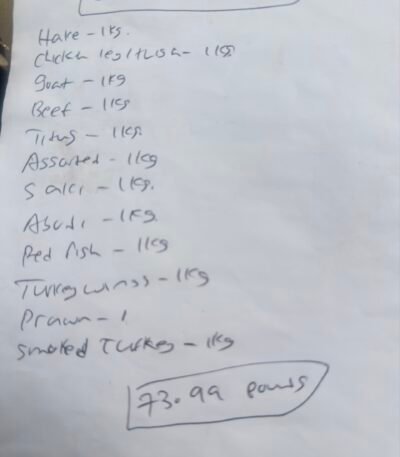 Hake - 1kg.
Chicken leg/tush - 1kg
goat - 1kg
Beef - 1kg
Titus - 1kg
Assorted - 1kg
Saki - 1kg.
Abodi - 1kg
Red fish - 1kg
Turkey wings - 1kg
Prawn - 1
Smoked Turkey - 1kg
73.99 pounds